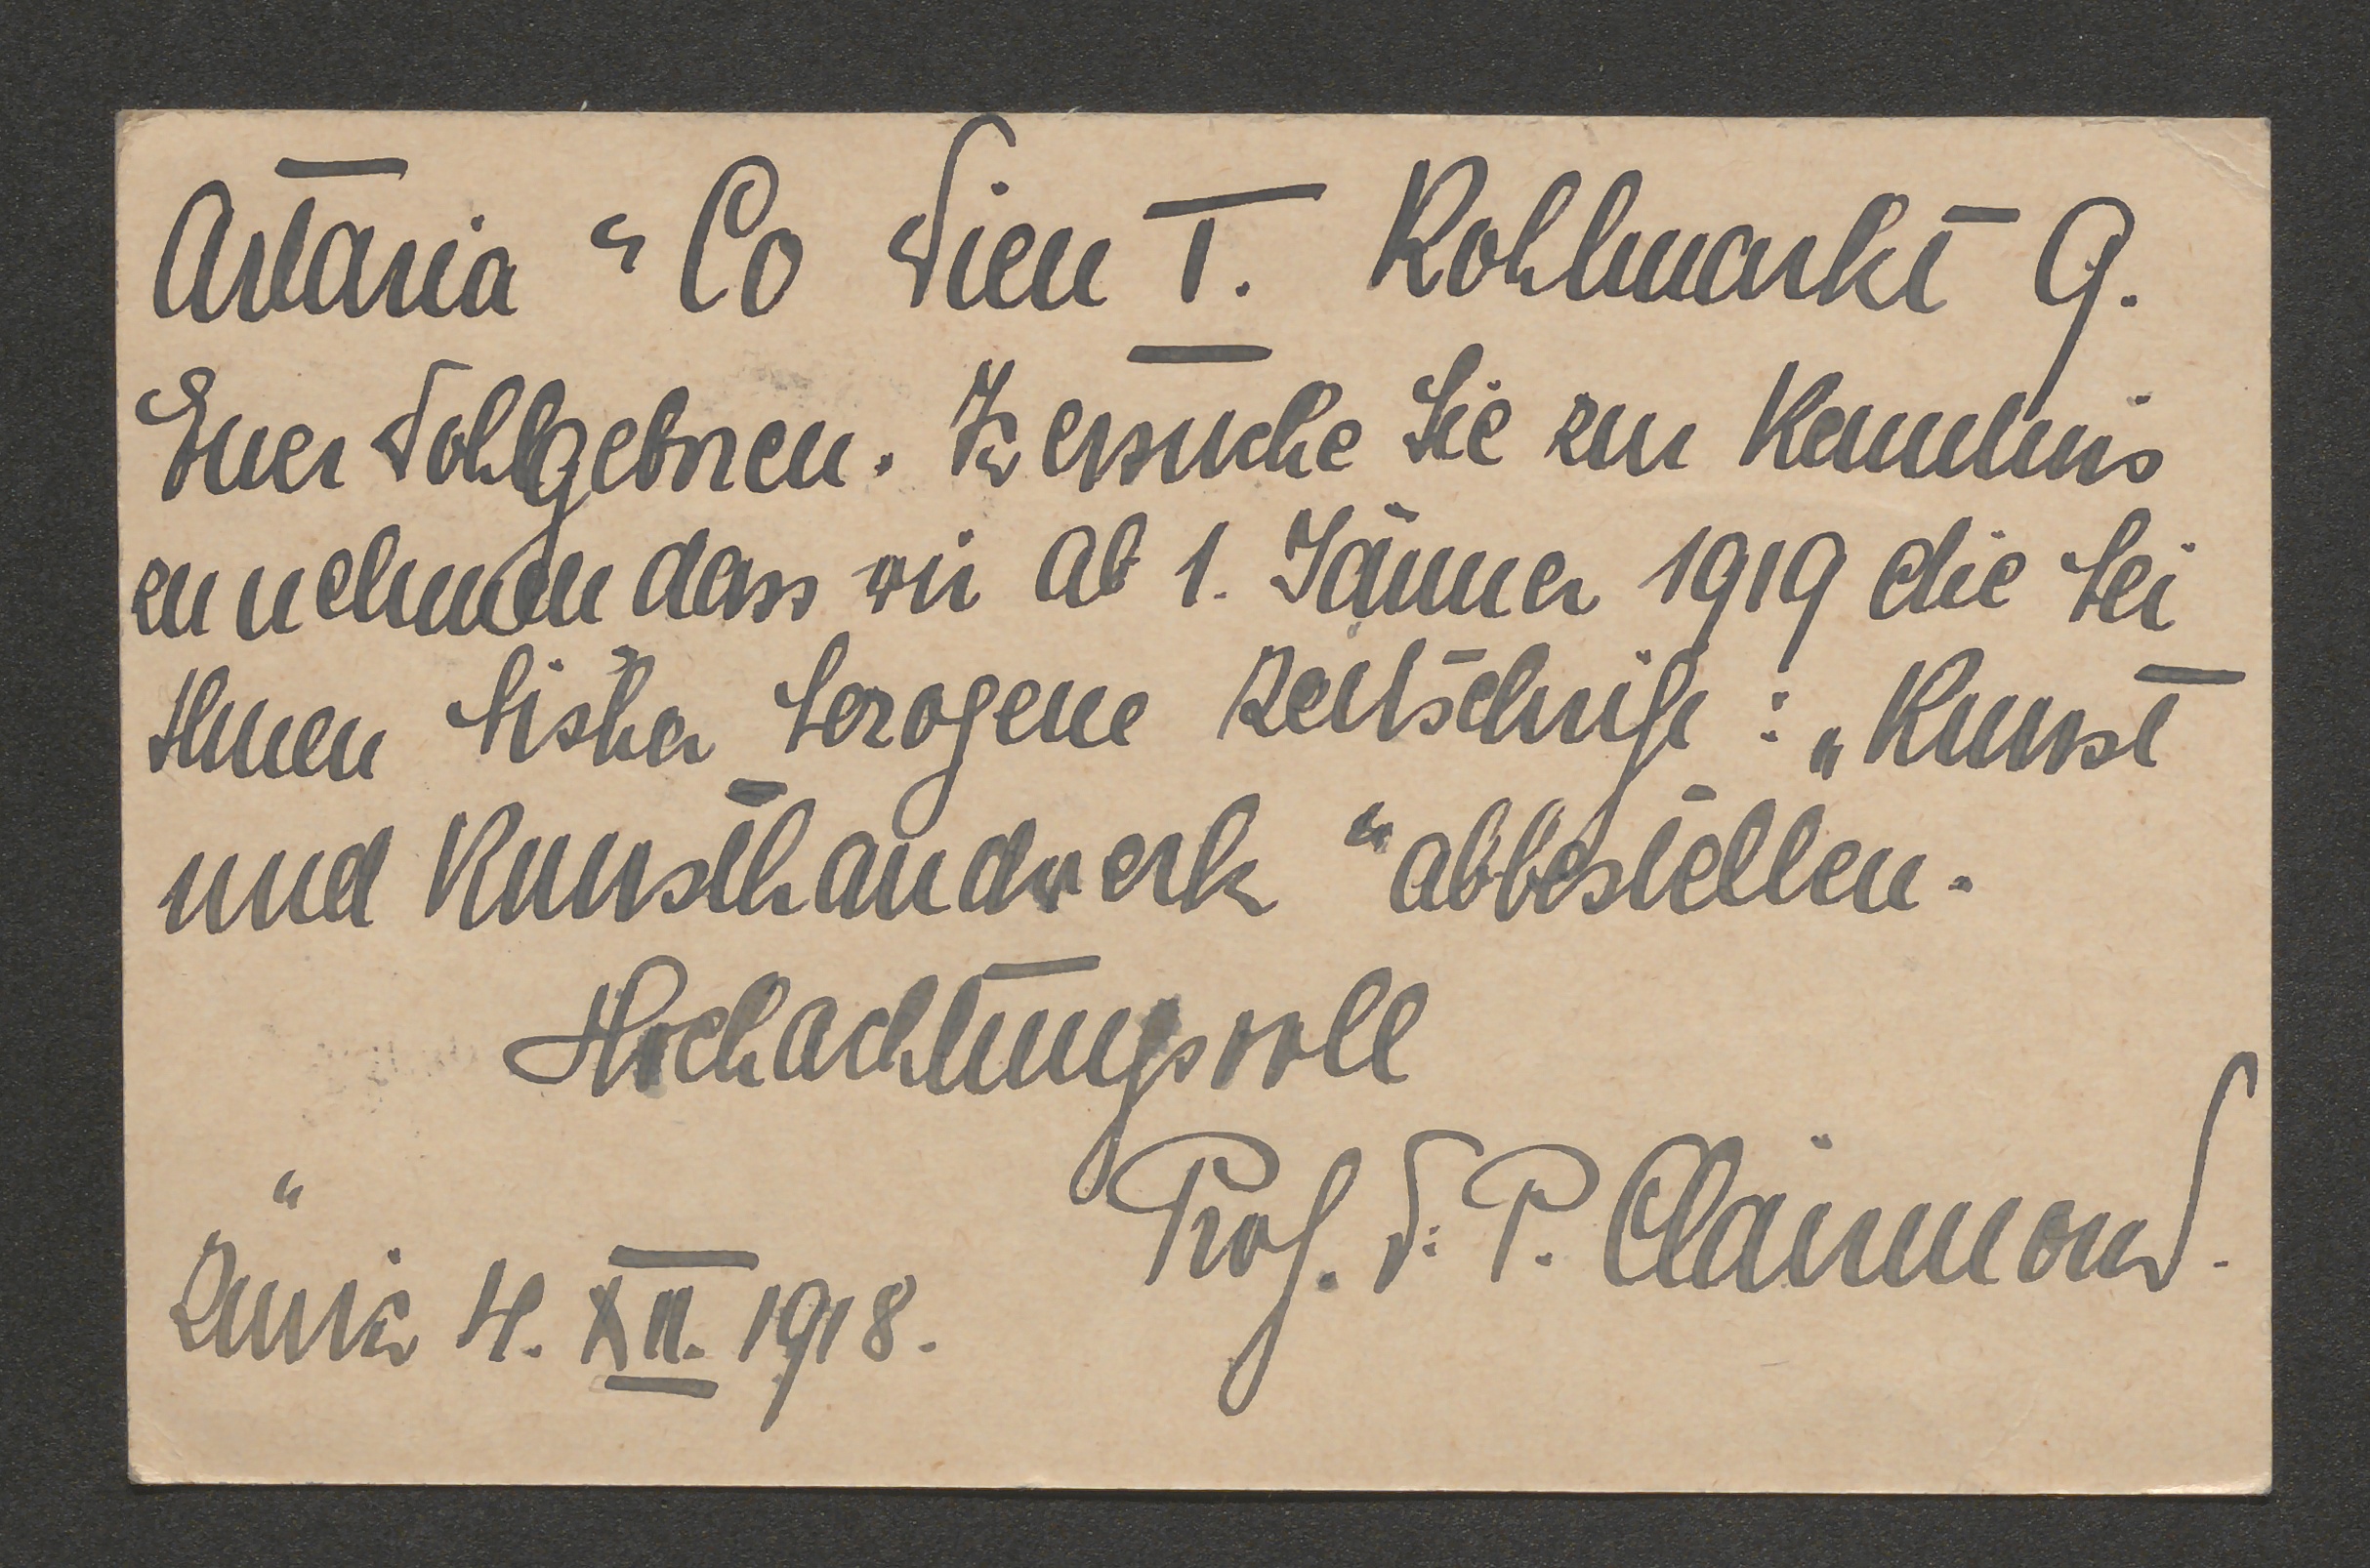 Artaria & Co Wien I. Kohlmarkt 9.
Euer Wohlgeboren. Ich ersuche Sie zur Kenntnis
zu nehmen dass wir ab 1. Jänner 1919 die bei
Ihnen bisher bezogene Zeitschrift: „Kunst
und Kunsthandwerk“ abbestellen.
Hochachtungsvoll
Prof. Dr. P. Clairmont.
Zürich 4. XII. 1918.